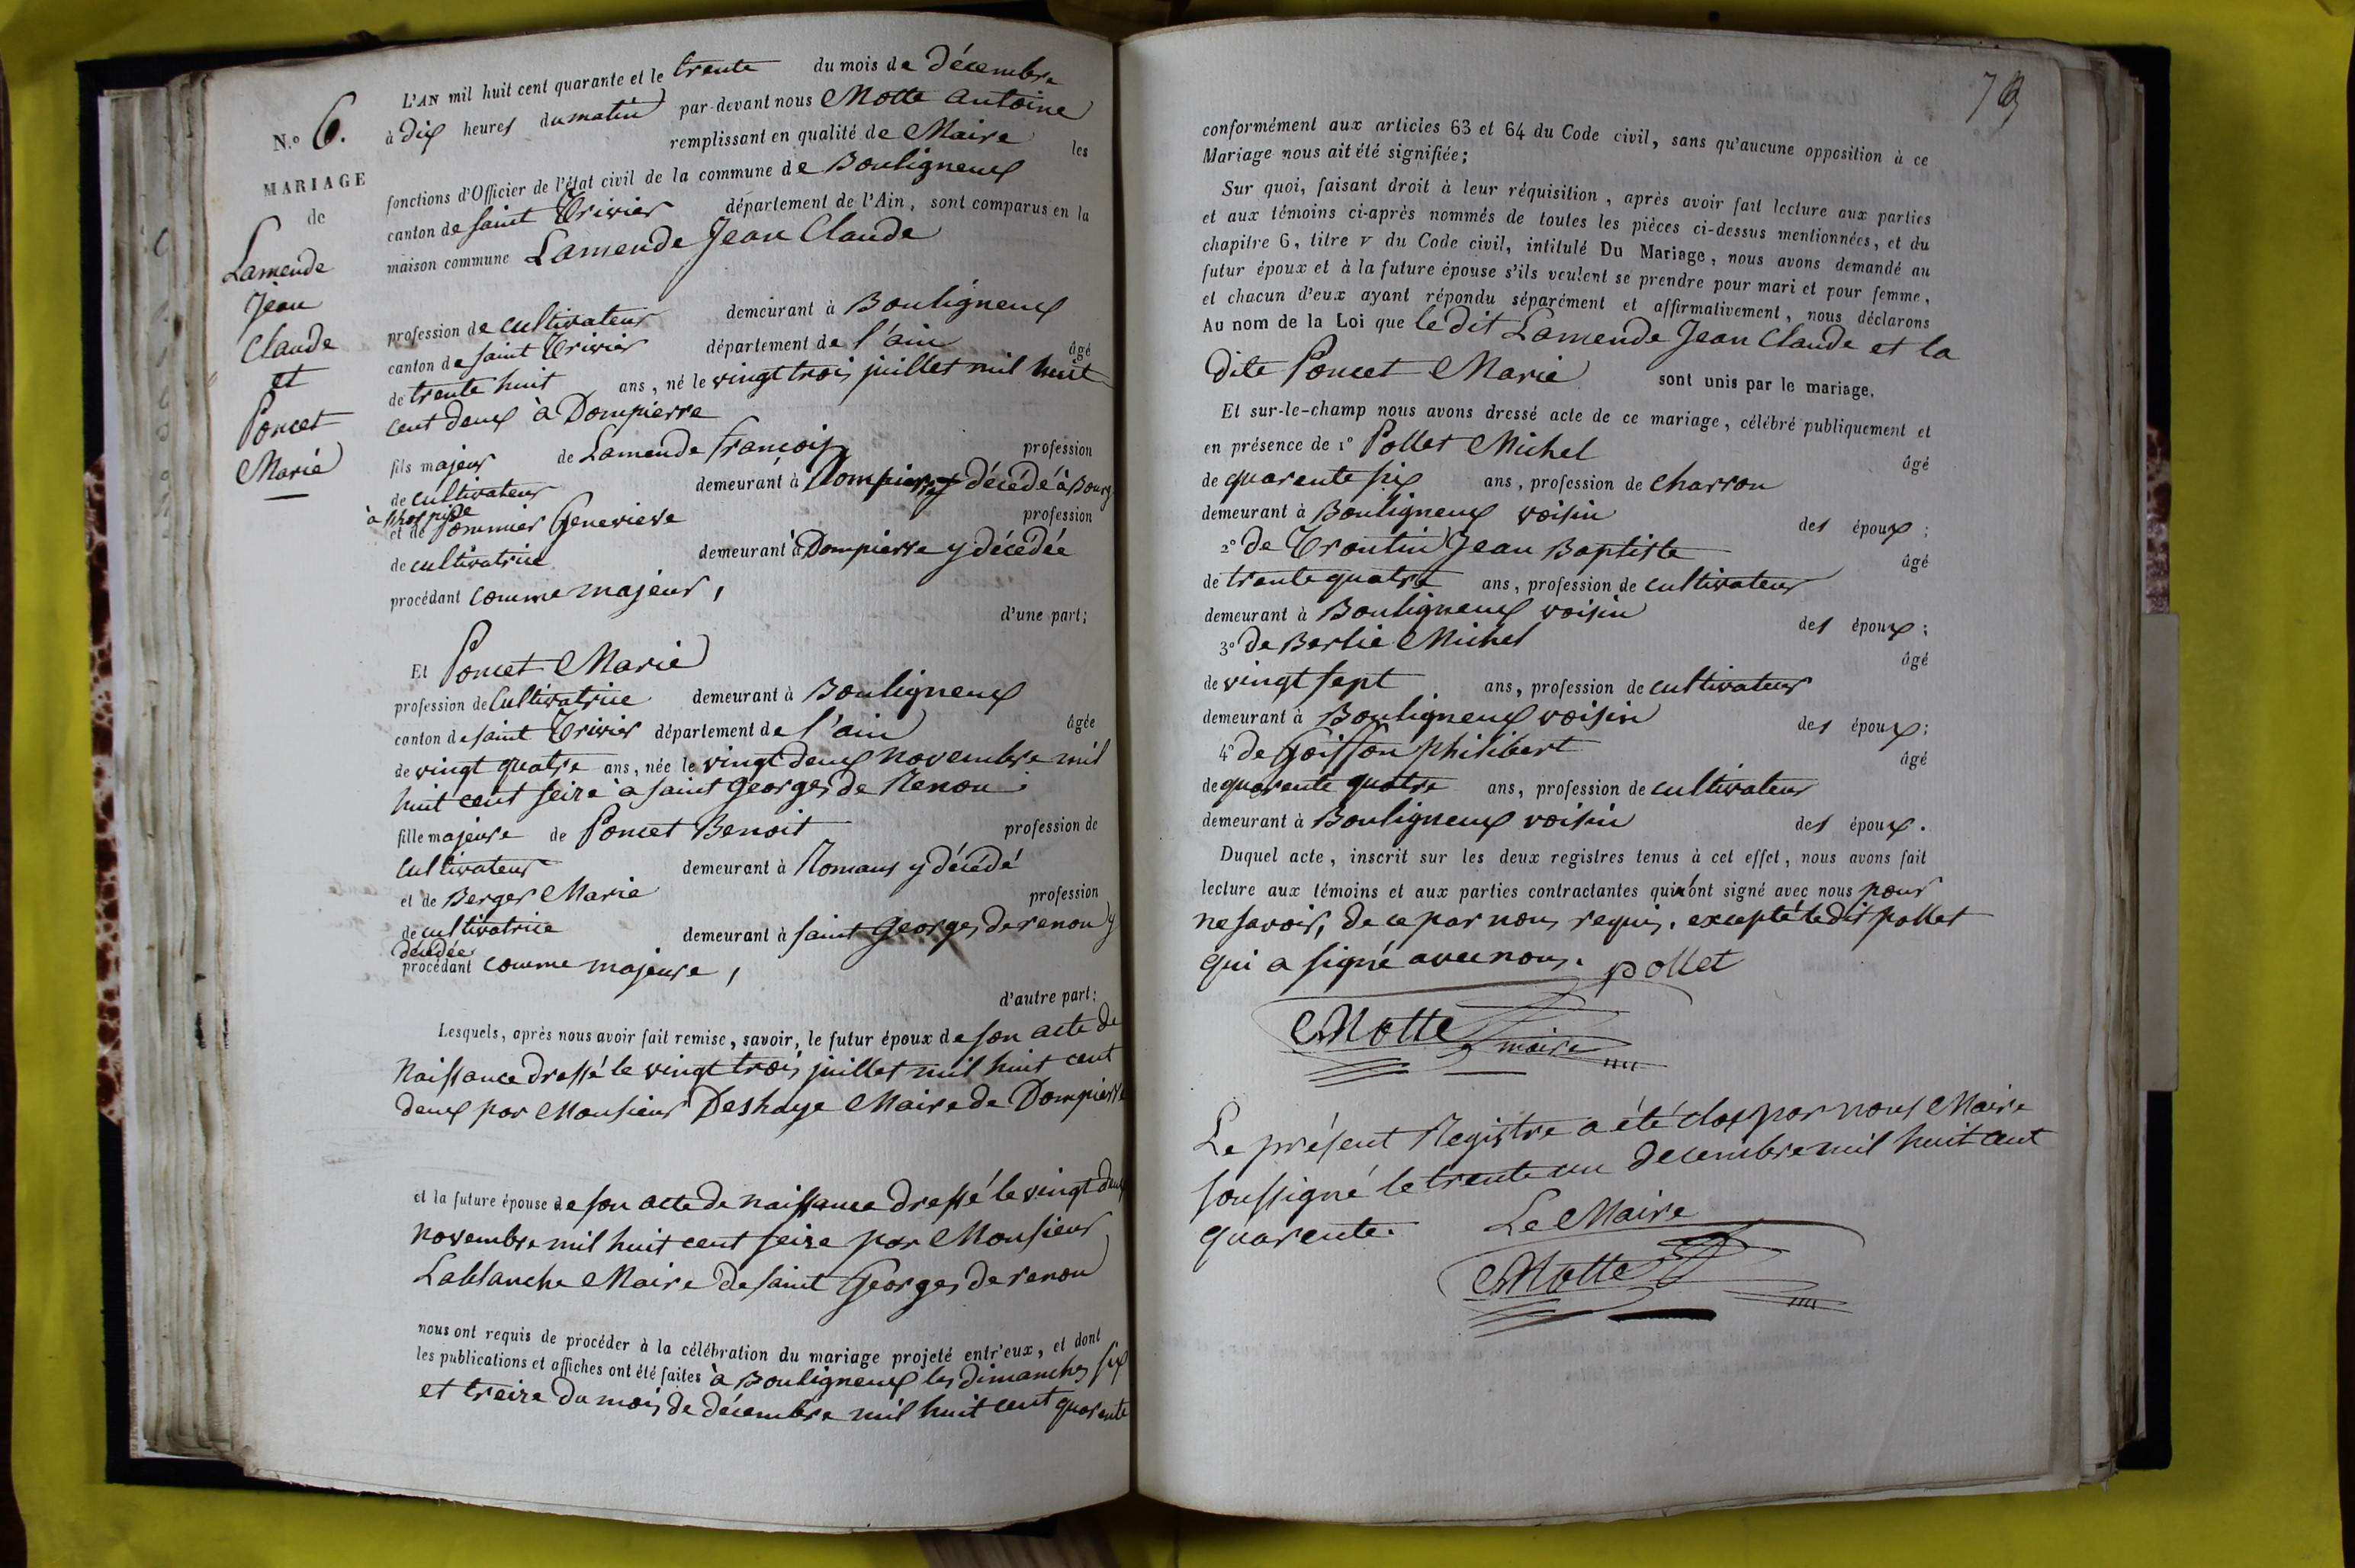 N.o 6.
MARIAGE
de
Lamende
Jean
Claude
et
Poncet
Marie
L'AN mil huit cent quarante et le trente du mois de décembre
à dix heures du matin par-devant nous Motte Antoine
remplissant en qualité de Maire les
fonctions d'Officier de l'état civil de la commune de Bouligneux
canton de saint Trivier département de l'Ain, sont comparus en la
maison commune Lamende Jean Claude
profession de cultivateur demeurant à Bouligneux
canton de saint Trivier département de l'ain âgé
de trente huit ans, né le vingt trois juillet mil huit
cent deux à Dompierre
fils majeur de Lamende françois profession
de cultivateur demeurant à Dompierre décédé à Bourg
à l'hospice
et de Pommier Genevieve profession
de cultivatrice demeurant à Dompierre y décédée
procédant comme majeur,
d'une part;
Et Poncet Marie
profession de Cultivatrice demeurant à Bouligneux
canton de saint Trivier département de l'ain âgée
de vingt quatre ans, née le vingt deux novembre mil
huit cent seize à saint Georges de Renon
fille majeure de Poncet Benoit profession de
cultivateur demeurant à Romans y décédé
et de Berger Marie profession
de cultivatrice demeurant à saint Georges de renon y
décédée
procédant comme majeure,
d'autre part;
Lesquels, après nous avoir fait remise, savoir, le futur époux de son acte de
Naissance dressé le vingt trois juillet mil huit cent
deux par Monsieur Deshaye Maire de Dompierre
et la future épouse de son acte de naissance dressé le vingt deux
novembre mil huit cent seize par Monsieur
Lablanche Maire de saint Georges de renon
nous ont requis de procéder à la célébration du mariage projeté entr'eux, et dont
les publications et affiches ont été faites à Bouligneux les dimanches six
et treize du mois de décembre mil huit cent quarante
conformément aux articles 63 et 64 du Code civil, sans qu'aucune opposition à ce
Mariage nous ait été signifiée;
Sur quoi, faisant droit à leur réquisition, après avoir fait lecture aux parties
et aux témoins ci-après nommés de toutes les pièces ci-dessus mentionnées, et du
chapitre 6, titre V du Code civil, intitulé Du Mariage, nous avons demandé au
futur époux et à la future épouse s'ils veulent se prendre pour mari et pour femme,
et chacun d'eux ayant répondu séparément et affirmativement, nous déclarons
Au nom de la Loi que le dit Lamende Jean Claude et la
dite Poncet Marie sont unis par le mariage.
Et sur-le-champ nous avons dressé acte de ce mariage, célébré publiquement et
en présence de 1o Pollet Michel âgé
de quarente six ans, profession de charron
demeurant à Bouligneux voisin des époux;
2o de Trontin Jean Baptiste âgé
de trente quatre ans, profession de cultivateur
demeurant à Bouligneux voisin des époux;
3o de Berlie Michel âgé
de vingt sept ans, profession de cultivateur
demeurant à Bouligneux voisin des époux;
4o de Goiffon philibert âgé
de quarente quatre ans, profession de cultivateur
demeurant à Bouligneux voisin des époux.
Duquel acte, inscrit sur les deux registres tenus à cet effet, nous avons fait
lecture aux témoins et aux parties contractantes qui n'ont signé avec nous pour
ne savoir, de ce par nous requis. excepté le dit pollet
qui a signé avec nous. pollet
Motte maire
Le présent Registre a été clos par nous Maire
soussigné le trente un decembre mil huit cent
quarente. Le Maire
Motte